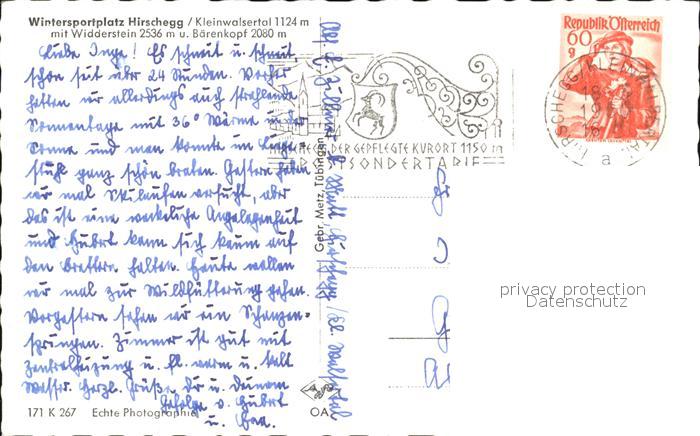 Wintersportplatz Hirschegg / Kleinwalsertal 1124 m
mit Widderstein 2536 m u. Bärenkopf 2080 m
Liebe Inge! Es schneit u. schneit
schon seit über 24 Stunden. Vorher
hatten wir allerdings auch strahlende
Sonnentage mit 36° Wärme in der
Sonne und man konnte im Liege-
stuhl ganz schön braten. Gestern haben
wir mal Skilaufen versucht, aber
das ist eine wackelige Angelegenheit
und Hubert kann sich kaum auf
den Brettern halten. Heute wollen
wir mal zur Wildfütterung gehen.
Vorgestern sahen wir ein Schanzen-
springen. Zimmer ist gut mit
Zentralheizung u. fl. warm u. kalt
Wasser. Herzl. Grüße dir u. deinem
Gefolge v. Hubert
u.
171 K 267 Echte Photographie
OA
Gebr. Metz, Tübingen
DER GEPFLEGTE KURORT 1150 m
POSTSONDERTARIF
Republik Österreich
60
g
HIRSCHEGG, KLEINWALSERTAL
a
privacy protection
Datenschutz